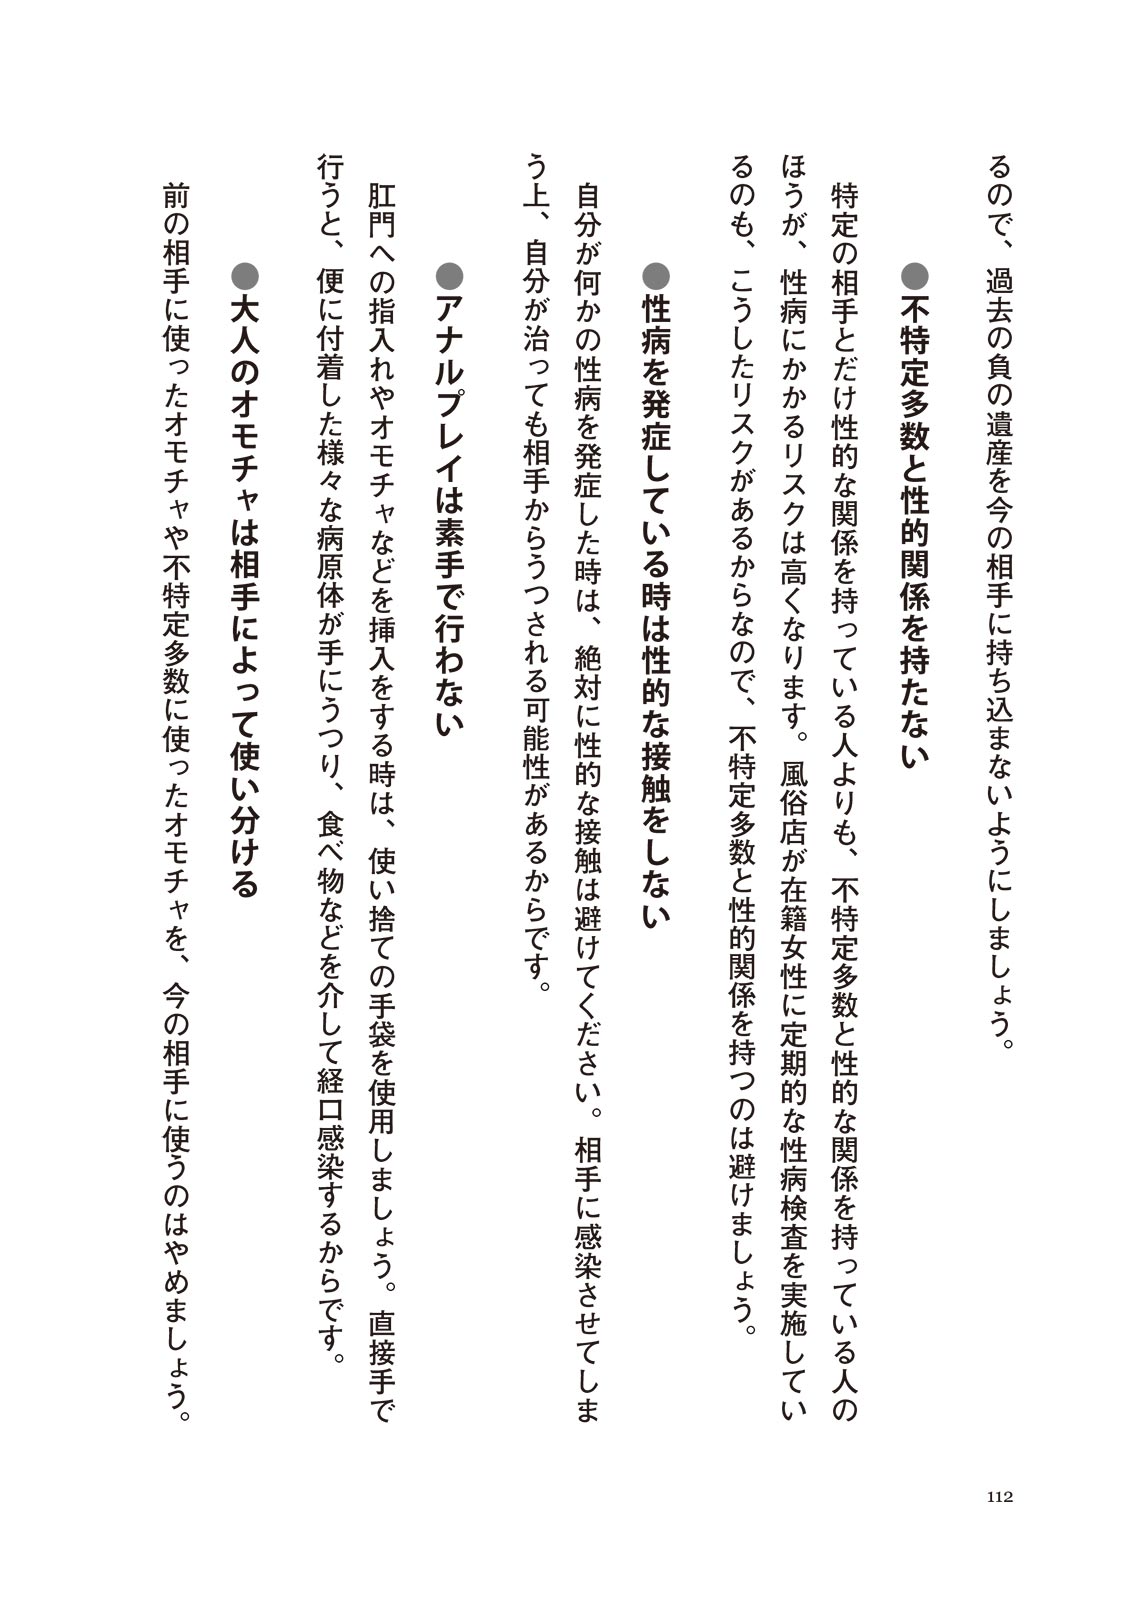 るので、過去の負の遺産を今の相手に持ち込まないようにしましょう。
●不特定多数と性的関係を持たない
特定の相手とだけ性的な関係を持っている人よりも、不特定多数と性的な関係を持っている人の
ほうが、性病にかかるリスクは高くなります。風俗店が在籍女性に定期的な性病検査を実施してい
るのも、こうしたリスクがあるからなので、不特定多数と性的関係を持つのは避けましょう。
●性病を発症している時は性的な接触をしない
自分が何かの性病を発症した時は、絶対に性的な接触は避けてください。相手に感染させてしま
う上、自分が治っても相手からうつされる可能性があるからです。
●アナルプレイは素手で行わない
肛門への指入れやオモチャなどを挿入をする時は、使い捨ての手袋を使用しましょう。直接手で
行うと、便に付着した様々な病原体が手にうつり、食べ物などを介して経口感染するからです。
●大人のオモチャは相手によって使い分ける
前の相手に使ったオモチャや不特定多数に使ったオモチャを、今の相手に使うのはやめましょう。
112